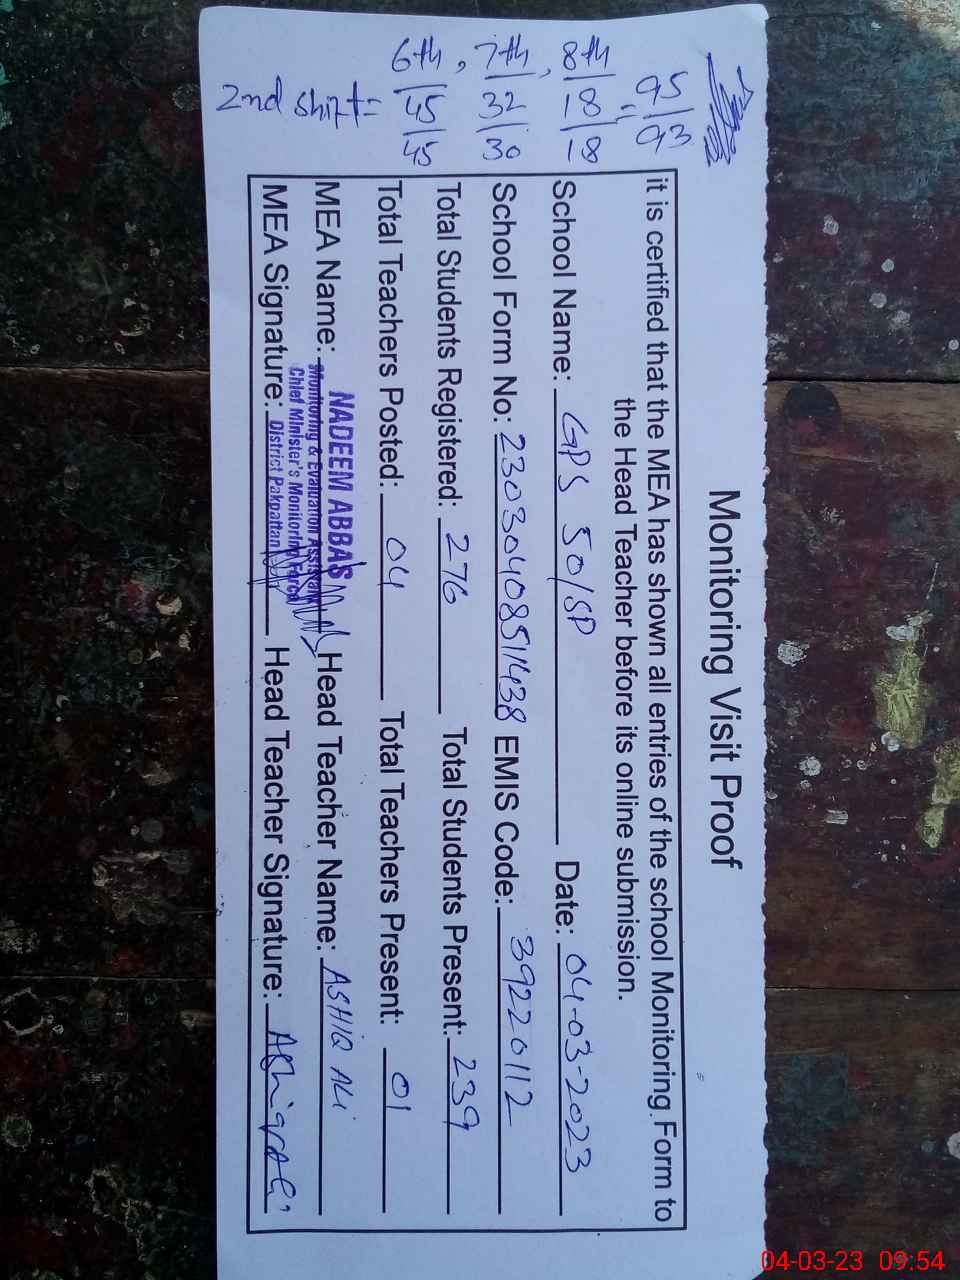 Monitoring Visit Proof
it is certified that the MEA has shown all entries of the school Monitoring Form to
the Head Teacher before its online submission.
School Name: GPS 50/SP Date: 04-03-2023
School Form No: 2303040851438 EMIS Code: 39220112
Total Students Registered: 276 Total Students Present: 239
Total Teachers Posted: 04 Total Teachers Present: 01
MEA Name: NADEEM ABBAS Head Teacher Name: ASHIQ ALI
Monitoring & Evaluation Assistant
Chief Minister's Monitoring Force
District Pakpattan
MEA Signature: Head Teacher Signature: Ashiq Ali
2nd shift = 6th/45/45, 7th/32/30, 8th/18/18 = 95/93
04-03-23 09:54